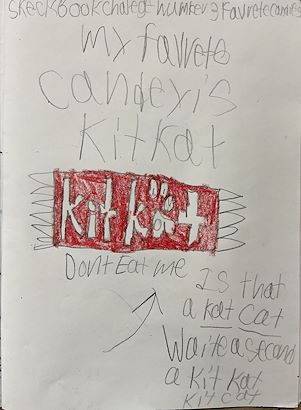 skeckBookchaleat number 3 Favretecandies
my favrete
candeyis
kitkat
kit kät
Dont Eat me
Is that
a kat cat
Waiteasecond
a kit kat
kit cat